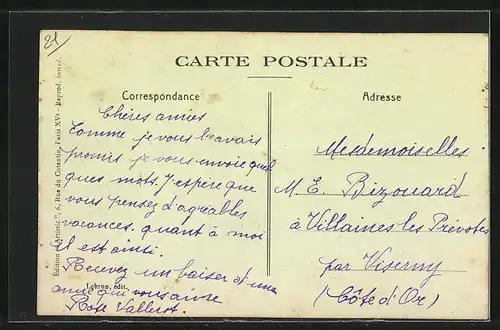 21
CARTE POSTALE
Correspondance
Adresse
Chères amies
Comme je vous l'avais
promis je vous envoie quel
ques mots. J'espère que
vous pensez d'agréables
vacances. quant à moi
il est ainsi.
Recevez un baiser d'une
amie qui vous aime
Rose
Mesdemoiselles
M. E. Bizouard
à Villaines les Prévotes
par Viserny
(Côte d'Or)
Lebrun, édit.
Edition "Artistic", 6, Rue du Cotentin, Paris XVe - Reprod. interd.